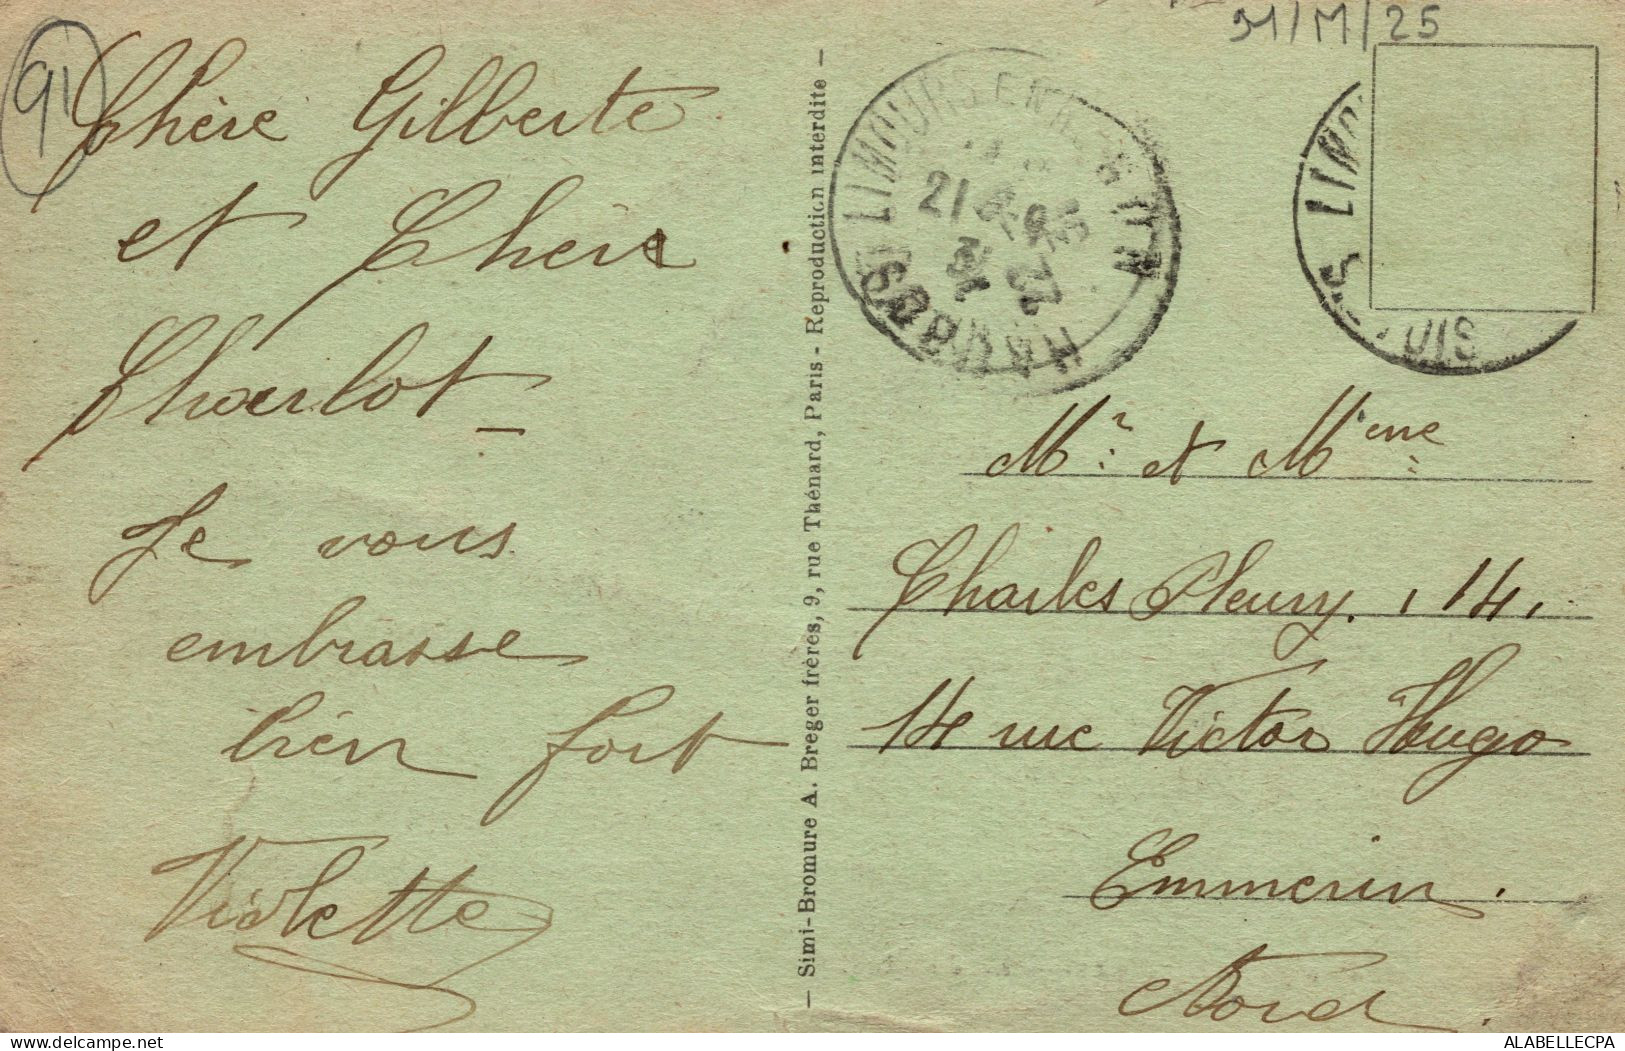 91
31/M/25
Chère Gilberte
et Chère
Charlot –
Je vous
embrasse
bien fort
Violette
— Simi-Bromure A. Breger frères, 9, rue Thénard, Paris - Reproduction interdite —
LIMOURS EN
21
37
LIMO
OIS
Mr et Mme
Charles Fleury, 14,
14 rue Victor Hugo
Emmerin.
Nord.
delcampe.net
ALABELLECPA